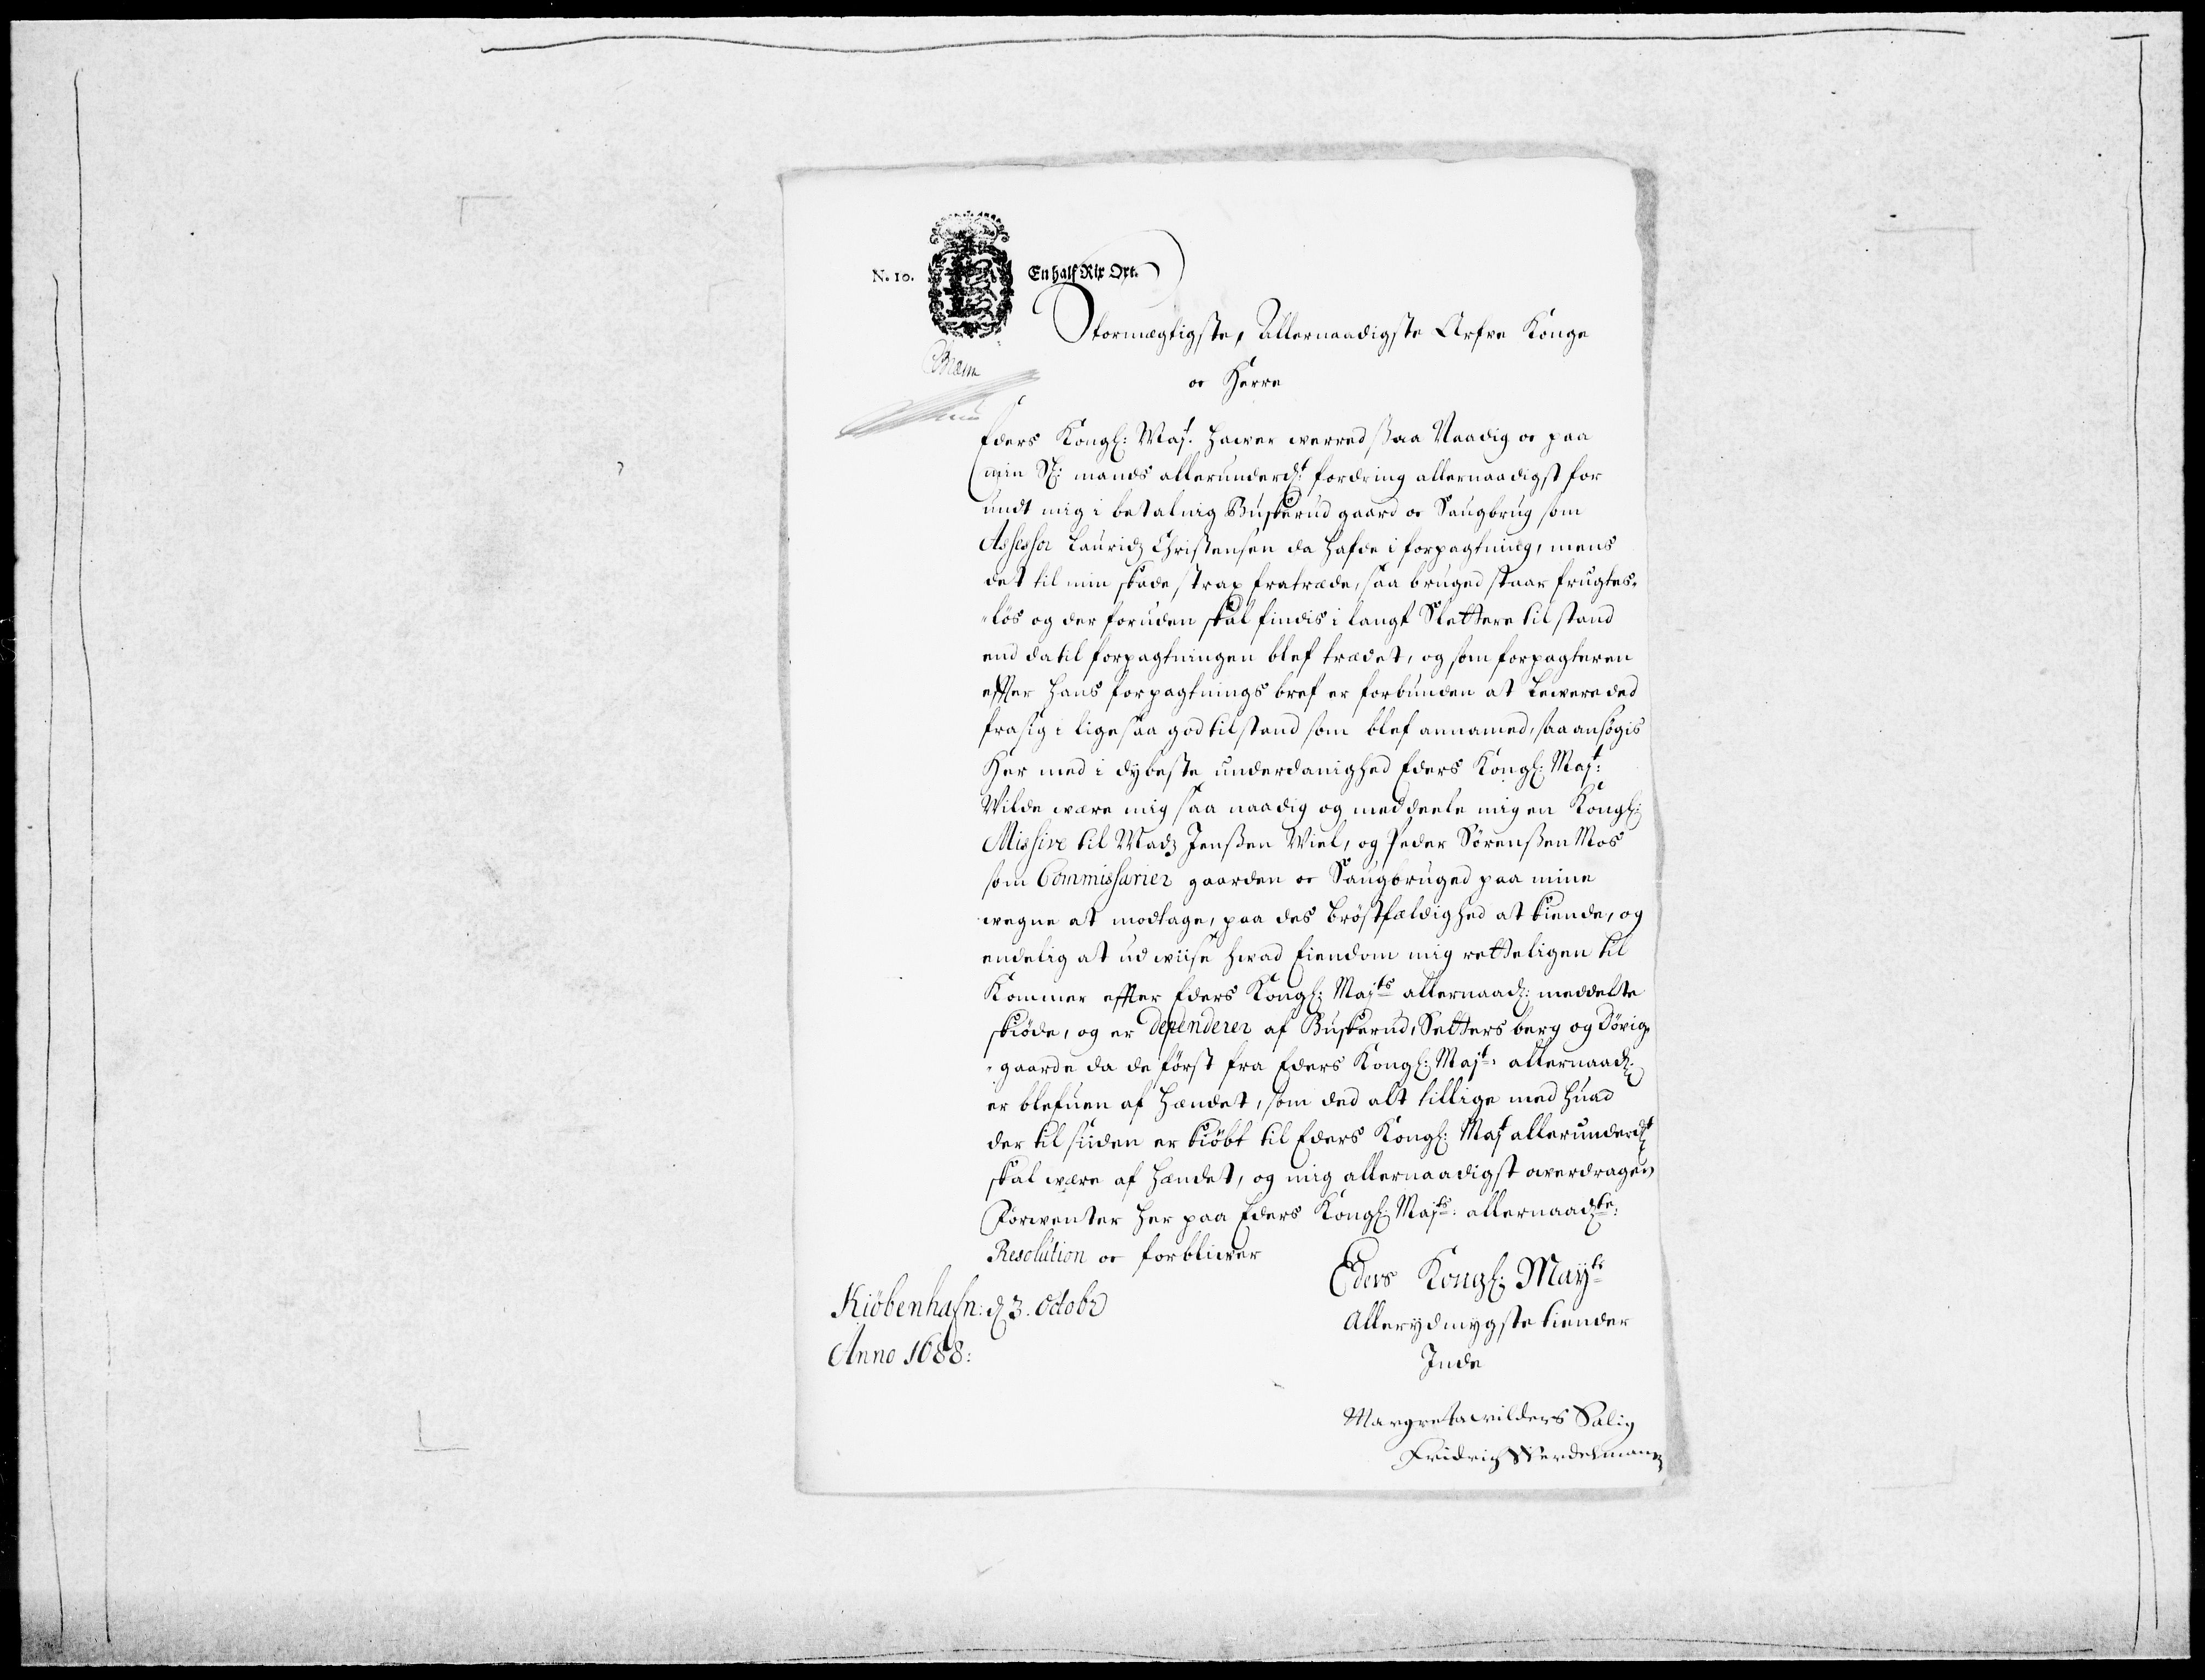 N. 10. En half Rix Ort.
Stormægtigste, Allernaadigste Arfve Konge
oc Herre
Eders Kongl: Maj. hawer werred ssaa Naadig oc paa
min Sl: mands allerunderdt fordring allernaadigst for
undt mig i betalnig Buskerud gaard oc Saugbrug som
Assessor Lauridz Christensen da hafde i forpagtning, mens
det til min skade strax fratræde, saa bruged staar frugtes-
-lös og der foruden skal findis i langt Slettere til stand
end da til forpagtningen blef trædet, og som forpagteren
effter hans forpagtnings bref er forbunden at Lewere ded
fra sig i lige saa god til stand som blef annamed, saa ansögis
Her med i dybeste underdanighed Eders Kongl: Majt:
Wilde være mig saa naadig og meddeele mig en Kongl:
Missive til Madz Jenssen Wiel, og Peder Sörenssen Mos
som Commissarier gaarden oc Saugbruged paa mine
wegne at modtage, paa des bröstfældighed at kiende, og
endelig at udwiise hwad Eiendom mig retteligen til
Kommer effter Eders Kongl: Majts allernaad: meddelte
skiöde, og er dependerer af Buskerud, Setters berg og Dövig-
-gaarde da de först fra Eders Kongl: Majt: allernaad:
er blefuen af Hændet, som ded alt tillige med huad
der til siiden er kiöbt til Eders Kongl: Majt allerunderdt
skal være af hændet, og mig allernaadigst overdragen,
Forwenter her paa Eders Kongl: Majts: allernaadste:
Resolution oc forbliwer
Eders Kongl: Mayts
Kiöbenhafn: d 3. Octobr
Allerydmygste tiender
Anno 1688:
Inde
Margreta wilders Salig
Fridrich Werdelmans